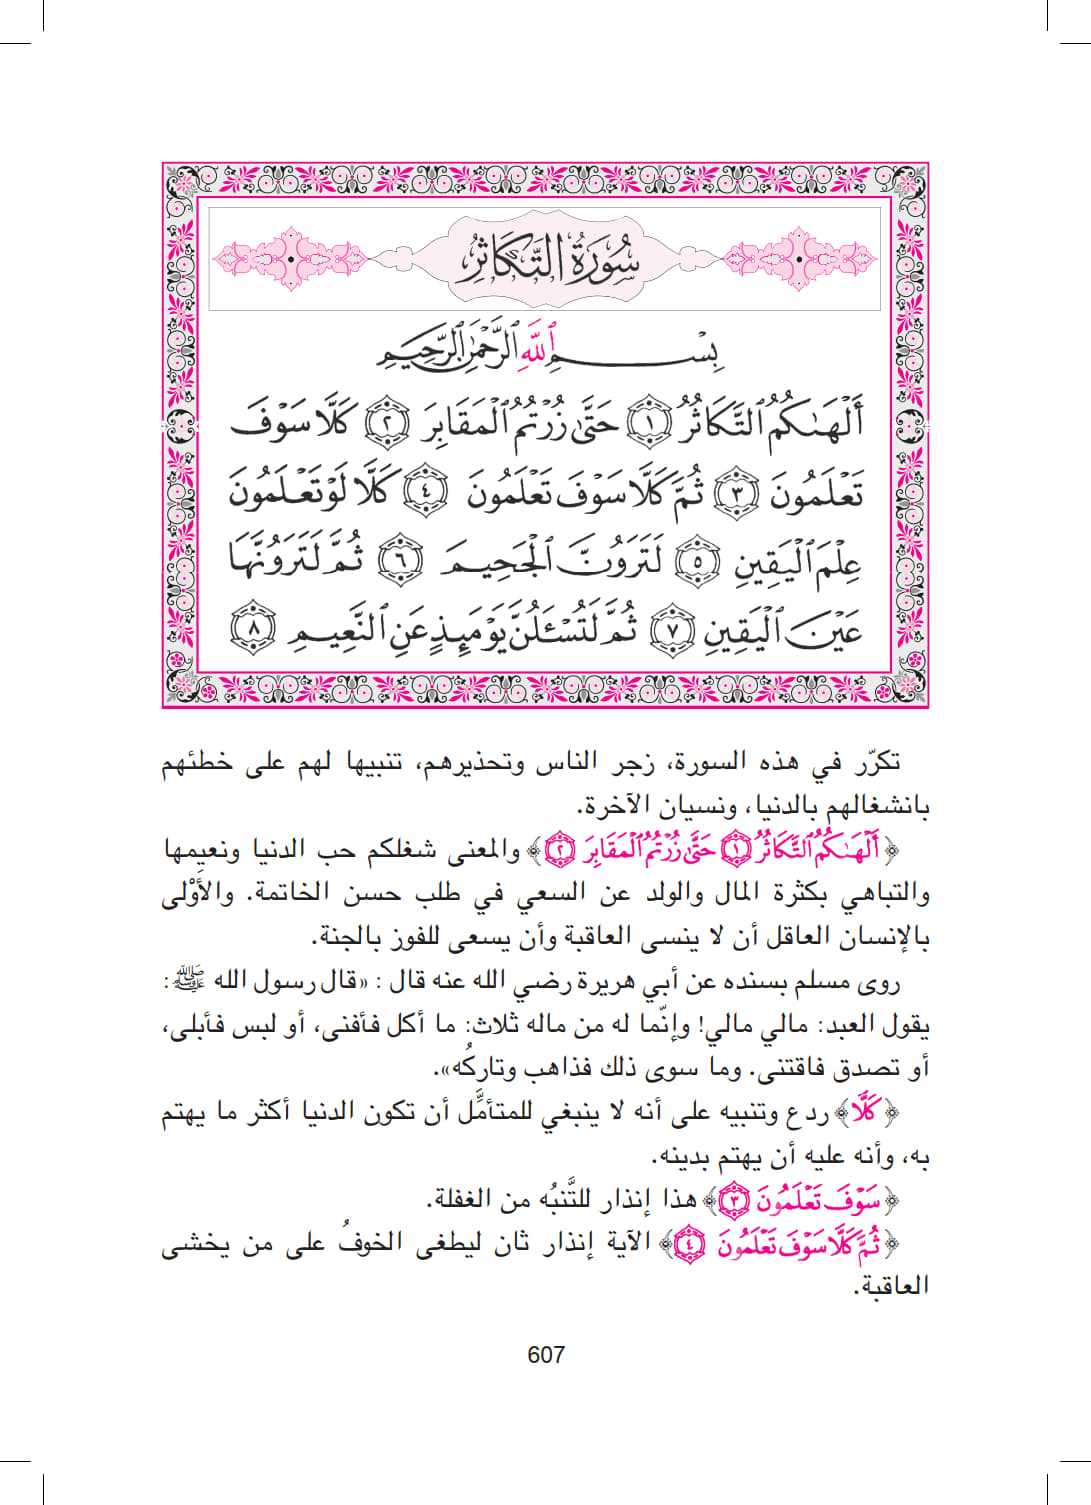 سُورَةُ التَّكَاثُرِ
بِسْمِ ٱللَّهِ ٱلرَّحْمَٰنِ ٱلرَّحِيمِ
أَلْهَىٰكُمُ ٱلتَّكَاثُرُ ١ حَتَّىٰ زُرْتُمُ ٱلْمَقَابِرَ ٢ كَلَّا سَوْفَ
تَعْلَمُونَ ٣ ثُمَّ كَلَّا سَوْفَ تَعْلَمُونَ ٤ كَلَّا لَوْ تَعْلَمُونَ
عِلْمَ ٱلْيَقِينِ ٥ لَتَرَوُنَّ ٱلْجَحِيمَ ٦ ثُمَّ لَتَرَوُنَّهَا
عَيْنَ ٱلْيَقِينِ ٧ ثُمَّ لَتُسْـَٔلُنَّ يَوْمَئِذٍ عَنِ ٱلنَّعِيمِ ٨
تكرّر في هذه السورة، زجر الناس وتحذيرهم، تنبيها لهم على خطئهم
بانشغالهم بالدنيا، ونسيان الآخرة.
﴿أَلْهَىٰكُمُ ٱلتَّكَاثُرُ ١ حَتَّىٰ زُرْتُمُ ٱلْمَقَابِرَ ٢﴾ والمعنى شغلكم حب الدنيا ونعيمِها
والتباهي بكثرة المال والولد عن السعي في طلب حسن الخاتمة. والأوْلى
بالإنسان العاقل أن لا ينسى العاقبة وأن يسعى للفوز بالجنة.
روى مسلم بسنده عن أبي هريرة رضي الله عنه قال : «قال رسول الله ﷺ :
يقول العبد: مالي مالي! وإنّما له من ماله ثلاث: ما أكل فأفنى، أو لبس فأبلى،
أو تصدق فاقتنى. وما سوى ذلك فذاهب وتاركُه».
﴿كَلَّا﴾ ردع وتنبيه على أنه لا ينبغي للمتأمِّل أن تكون الدنيا أكثر ما يهتم
به، وأنه عليه أن يهتم بدينه.
﴿سَوْفَ تَعْلَمُونَ ٣﴾ هذا إنذار للتَّنبُه من الغفلة.
﴿ثُمَّ كَلَّا سَوْفَ تَعْلَمُونَ ٤﴾ الآية إنذار ثان ليطغى الخوفُ على من يخشى
العاقبة.
607